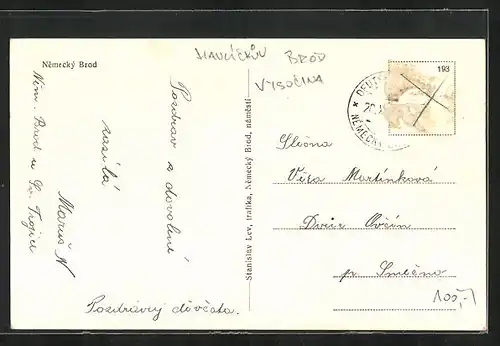 Německý Brod
HAVLÍČKŮV BROD
VYSOČINA
193
NĚMECKÝ
Pozdrav s dovolené
zasílá
Maruš N
Něm. Brod u Sv. Trojice
Pozdravuj děvčata.
Stanislav Lev, trafika, Německý Brod, náměstí
Slečna
Věra Martínková
Dvůr Ovčín
p. Smečno
100,-